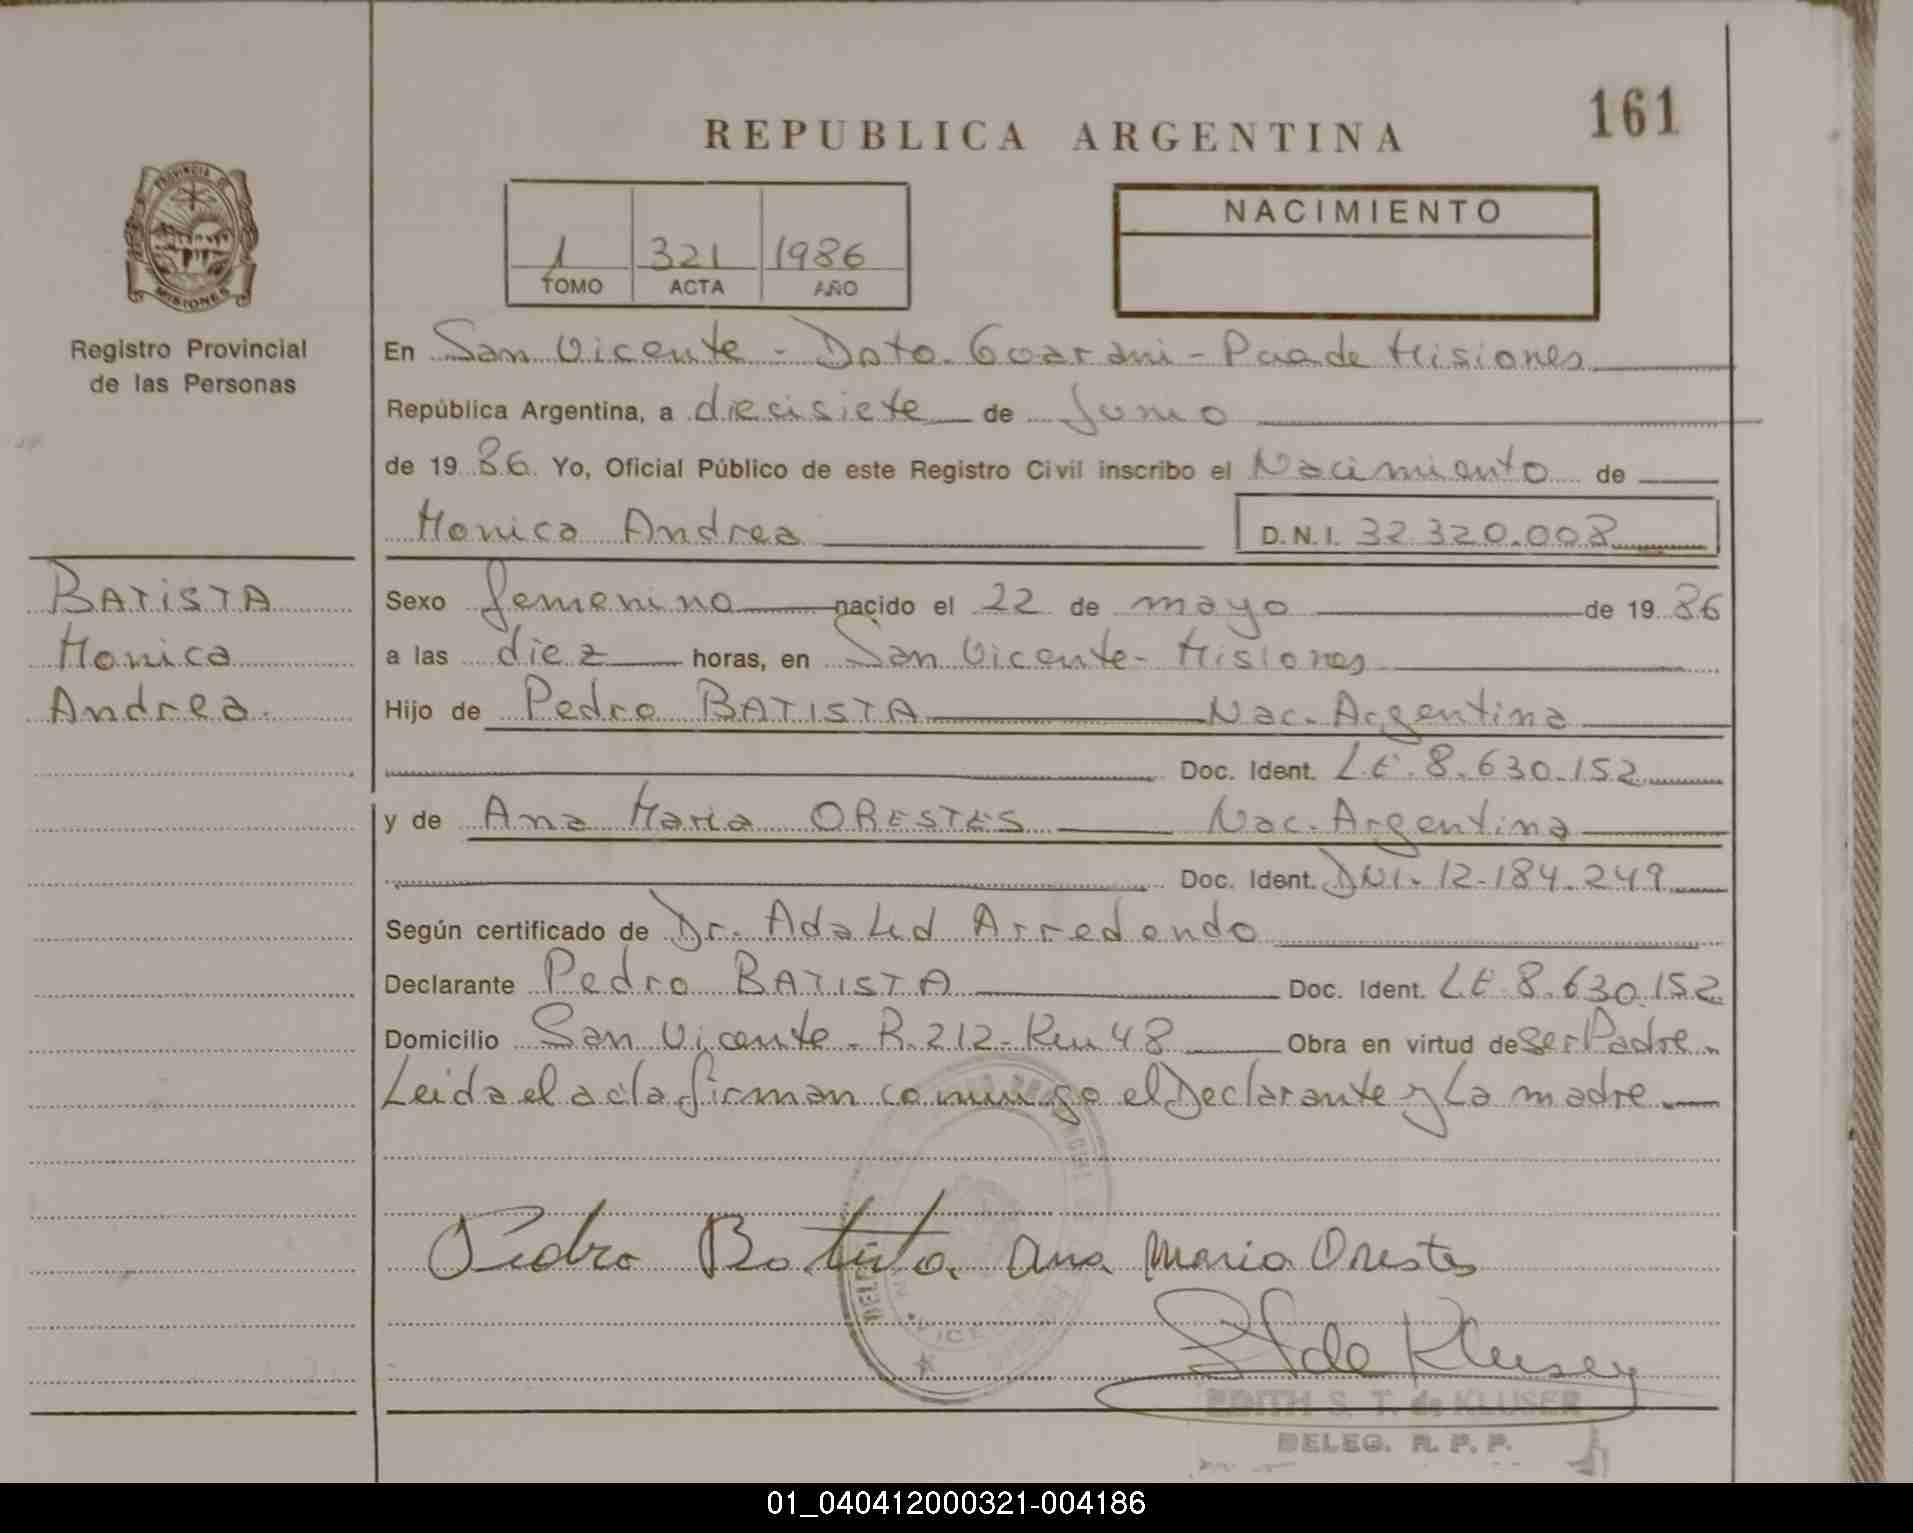 161
REPUBLICA ARGENTINA
PROVINCIA DE
MISIONES
Registro Provincial
de las Personas
1 321 1986
TOMO ACTA AÑO
NACIMIENTO
En San Vicente - Dpto. Guarani - Pcia de Misiones
República Argentina, a diecisiete de Junio
de 19 86. Yo, Oficial Público de este Registro Civil inscribo el Nacimiento de
Monica Andrea D.N.I. 32.320.008
BATISTA
Monica
Andrea.
Sexo femenino nacido el 22 de mayo de 19 86
a las diez horas, en San Vicente - Misiones
Hijo de Pedro BATISTA Nac. Argentina
Doc. Ident. L.E. 8.630.152
y de Ana Maria ORESTES Nac. Argentina
Doc. Ident. DNI. 12.184.249
Según certificado de Dr. Arredondo
Declarante Pedro BATISTA Doc. Ident. L.E. 8.630.152
Domicilio San Vicente - R. 212 - Km 48 Obra en virtud de ser Padre.
Leida el acta firman conmigo el Declarante y La madre.
Pedro Batista. Ana Maria Orestes
de Kluser
EDITH S. T. de KLUSER
DELEG. R. P. P.
01_040412000321-004186